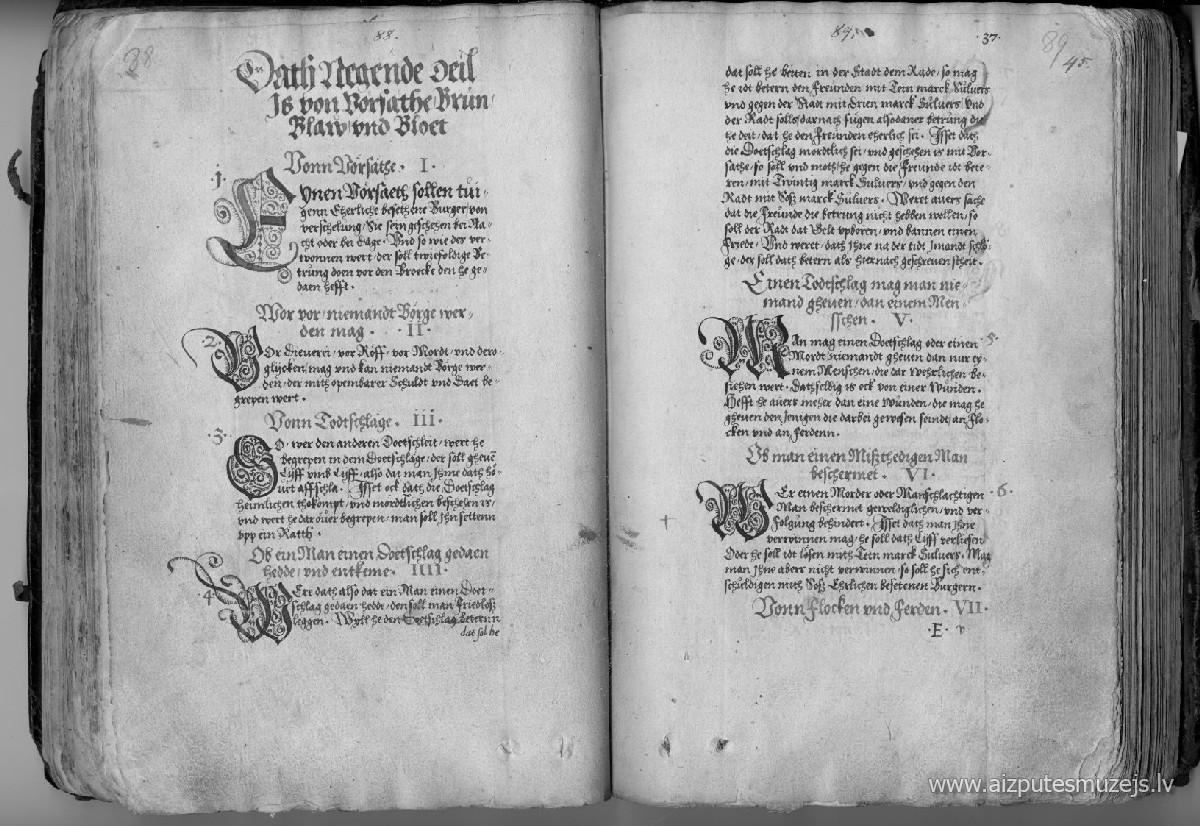 88.
88
Dath Negende Deil
Is von Vorsathe Brun
Blaw vnd Bloet
Vonn Vorsathe. I.
.1.
Ynen Vorsaeth sollen tui-
genn Eherliche besethene Burger von
verschelung, Sie sein geschehen bei Na-
cht oder bei dage. Vnd so wie des ver-
wonnen wert, der soll twiefoldige Be-
trung doen vor den Broecke den he ge-
daen hefft.
Wor vor niemandt Borge wer-
den mag. II.
2.
Vor Dieuerei, vor Roff, vor Mordt, vnd der-
glycken mag vnd kan niemandt Borge wer-
den, der mith openbarer Schuldt vnd Daet be-
grepen wert.
Vonn Todtschlage. III.
.3.
So wer den anderen Doetschleit, wert he
begrepen in dem Doetschlage, der soll gheuē
Lyff vmb Lyff, also dat man Ihme dath hö-
uet affschla. Isset ock dath die Doetschlag
heimlichen thokompt, vnd mordtlichen beschehen is,
vnd wert he dar ouer begrepen, man soll Ihn settenn
vpp ein Radth.
Ob ein Man einen Doetschlag gedaen
hedde, vnd entkeme. IIII.
4
Were dath also dat ein Man einen Doet-
schlag gedaen hedde, den soll man Friedloß
leggen. Wyll he den Doetschlag beternn
dat sol he
89.
37.
89
45.
dat soll he beten in der Stadt dem Rade, so mag
he idt betern den Freunden mit Tein marck Suluers
vnd gegen der Stadt mit Drien marck Suluers, vnd
der Radt solls darnach fugen alsodaner betrung die
he deit, dat he den Freunden eherlich sei. Isset dath
die Doetschlag mordtlich sei, vnd geschehen is mit Vor-
sathe, so soll vnd moth he gegen die Freunde idt bete-
ren mit Twintig marck Suluers, vnd gegen den
Radt mit Soß marck Suluers. Weret auers sache
dat die Freunde die betrung nicht hebben wollen, so
soll der Radt dat Gelt vpboren, vnd bannen einen
Friede. Vnd weret, dath Ihne na der tidt Imandt schlö-
ge, der soll dath betern als hiernach geschreuen steit.
Einen Todtschlag mag man nie-
mand gheuen, dan einem Men-
sschen. V.
5.
Man mag einen Doetschlag oder einen
Mordt niemandt gheuen dan nur ey-
nem Menschen, die dar wehrlichen be-
siehen wert. Dathselbig is ock von einer Wunden.
Hefft he auers meher dan eine Wunden, die mag he
gheuen den Jenigen die darbei gewesen seindt, an Flo-
cken vnd an Ferdenn.
Ob man einen Mißthedigen Man
beschermet. VI.
6.
Wer einen Morder oder Manschlachtigen
Man beschermet geweldiglichen, vnd ver-
folgung behindert. Isset dath man Ihne
verwinnen mag, he soll dath Lyff verliesen
Oder he soll idt losen mith Tein marck Suluers. Mag
man Ihne abers nicht verwinnen, so soll he sich ent-
schuldigen mith Soß Ehrlichen besetenen Burgern.
Vonn Flocken vnd Ferden. VII.
.E. v
www.aizputesmuzejs.lv